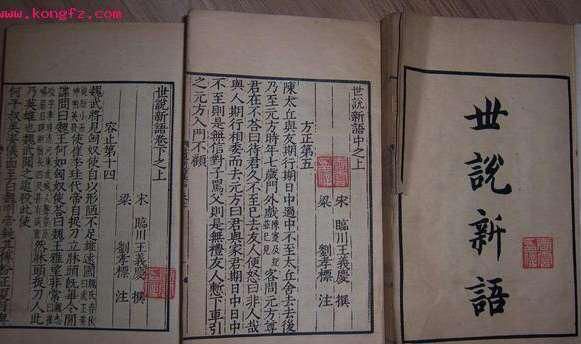 www.kongfz.com
世說新語
世說新語中之上
宋 臨川王義慶 撰
梁 劉孝標 注
方正第五
陳太丘與友期行期日中過中不至太丘舍去去後
乃至元方時年七歲門外戲客問元方尊
君在不荅曰待君久不至已去友人便怒曰非人哉
與人期行相委而去元方曰君與家君期日中日中
不至則是無信對子罵父則是無禮友人慙下車引
之元方入門不顧
世說新語卷下之上
宋 臨川王義慶 撰
梁 劉孝標 注
容止第十四
魏武將見匈奴使自以形陋不足雄遠國魏氏春秋
使崔季珪代帝自捉刀立牀頭既畢令間
諜問曰魏王何如匈奴使荅曰魏王雅望非常
然牀頭捉刀人此
乃英雄也魏武聞之追殺此使